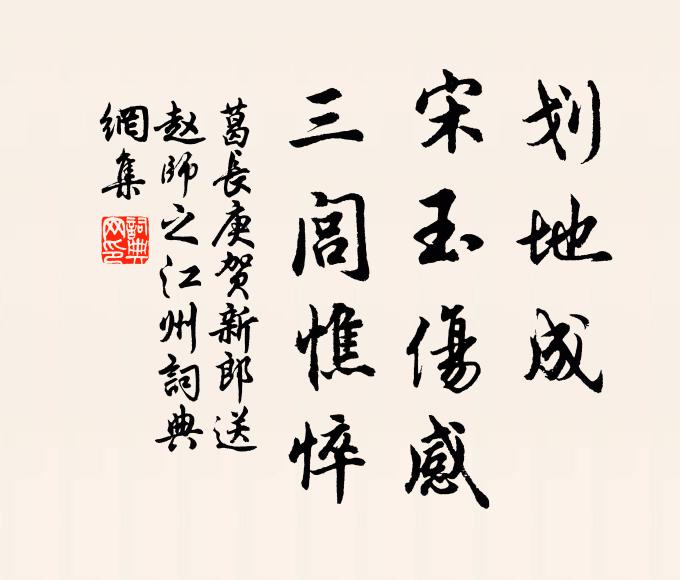 划地成
宋玉傷感
三闾憔悴
葛長庚贺新郎送
赵師之江州詞典
網集
詞典
网印